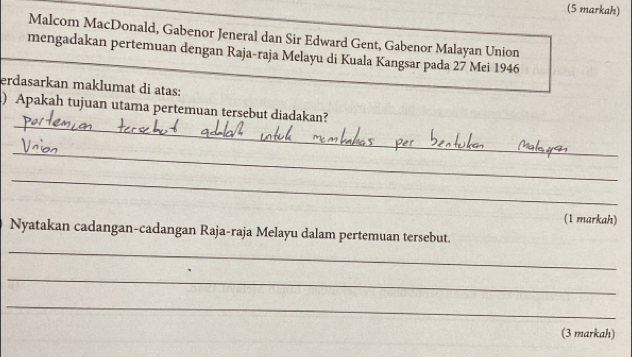 (5 markah)
Malcom MacDonald, Gabenor Jeneral dan Sir Edward Gent, Gabenor Malayan Union
mengadakan pertemuan dengan Raja-raja Melayu di Kuala Kangsar pada 27 Mei 1946
erdasarkan maklumat di atas:
) Apakah tujuan utama pertemuan tersebut diadakan?
portemian tersebut adalah untuk membahas per bentukan Malayan
Union
(1 markah)
) Nyatakan cadangan-cadangan Raja-raja Melayu dalam pertemuan tersebut.
(3 markah)